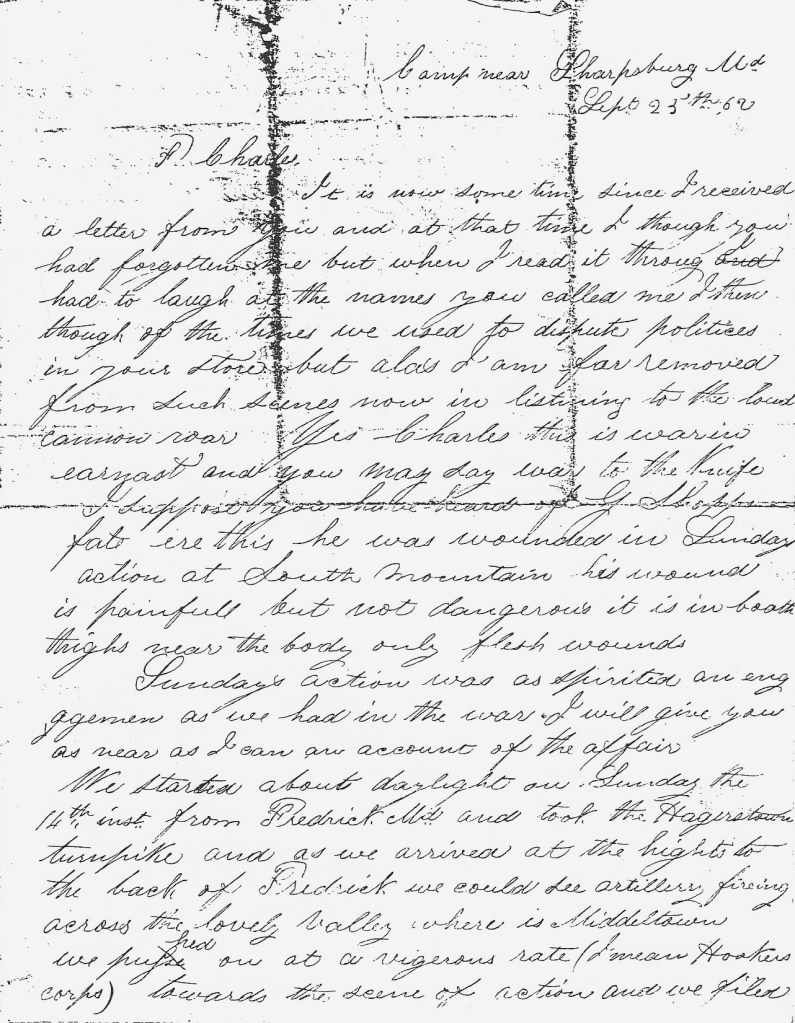 Camp near Sharpsburg Md
Sept 25th 62
F. Charles.
It is now some time since I received
a letter from you and at that time I though you
had forgotten me but when I read it throug and I
had to laugh at the names you called me I then
though of the times we used to dispute politices
in your store but alas I am far removed
from such scenes now in listning to the loud
cannon roar Yes Charles this is war in
earnast and you may say war to the Knife
I suppose you have heard of G Shopps
fate ere this he was wounded in Sunday
action at South Mountain his wound
is painfull but not dangerous it is in boath
thighs near the body only flesh wounds
Sunday's action was as spirited an eng
agemen as we had in the war. I will give you
as near as I can an account of the affair
We started about daylight on Sunday the
14th inst. from Fredrick Md and took the Hagerstown
turnpike and as we arrived at the hights to
the back of Fredrick we could see artillery fireing
across the lovely valley where is Middeltown
we pushed on at a vigerous rate (I mean Hookers
corps) towards the scene of action and we filed